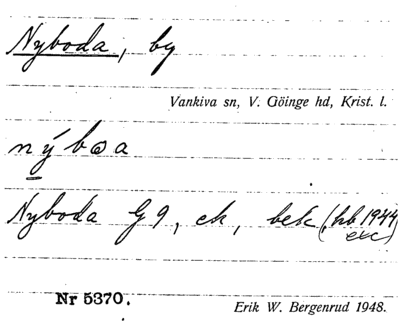 Nyboda, by
Vankiva sn, V. Göinge hd, Krist. l.
nýbωa
Nyboda G9, ek, bek (hb 1944
exc)
Nr 5370.
Erik W. Bergenrud 1948.